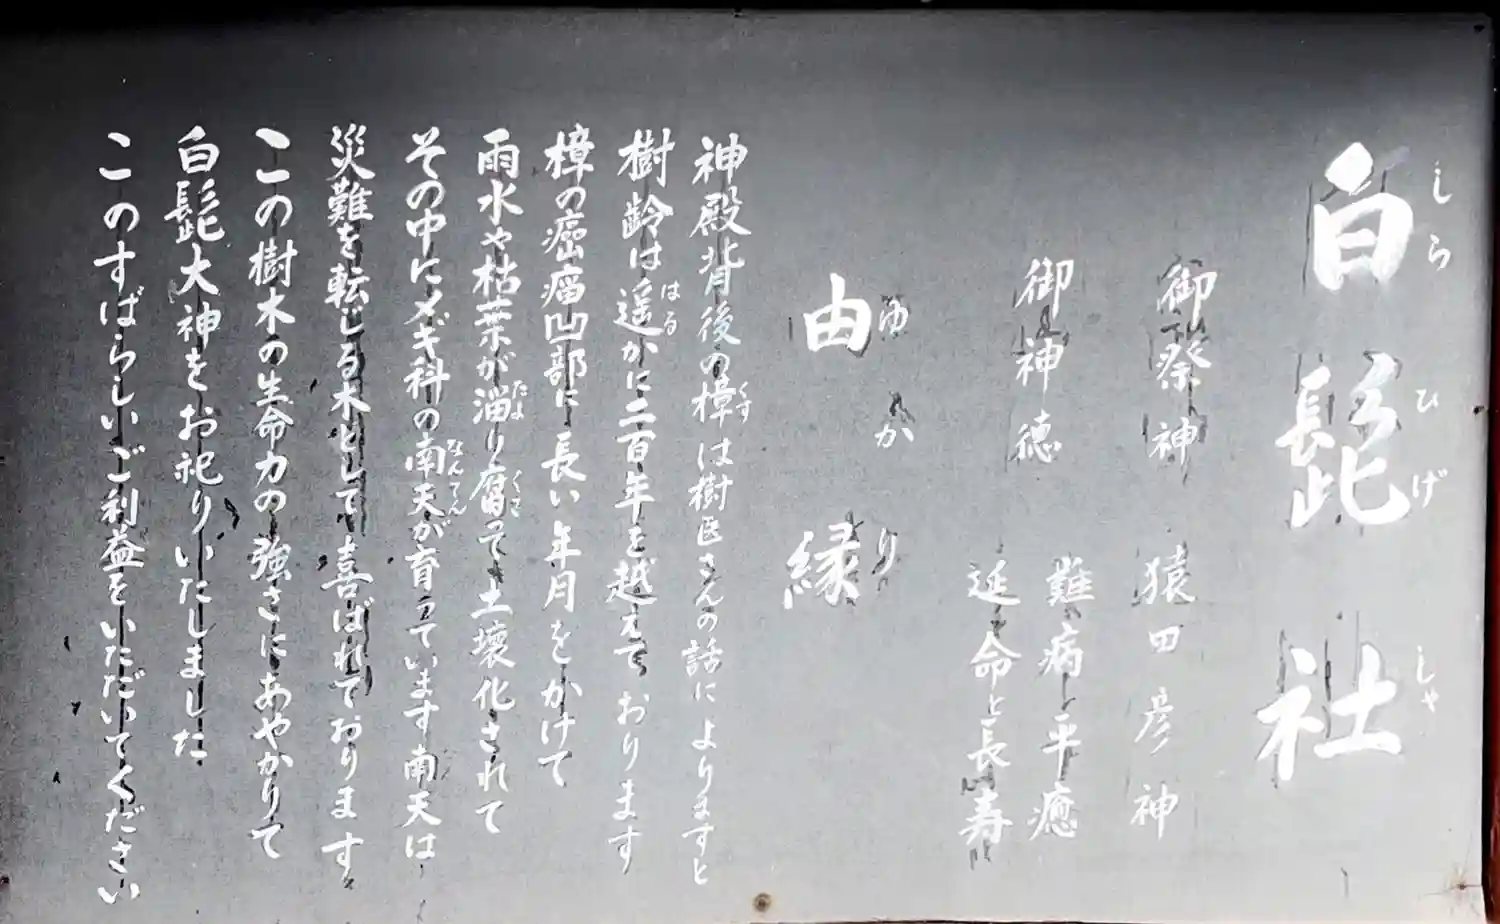 白髭社
しらひげしゃ
御祭神 猿田彦神
御神徳 難病と平癒
延命と長寿
由縁
ゆかり
神殿背後の樟は樹医さんの話によりますと
くす
樹齢は遥かに二百年を越えております
はる
樟の癌瘤凹部に長い年月をかけて
雨水や枯葉が溜り腐って土壌化されて
たま
くさ
その中にメギ科の南天が育っています南天は
なんてん
災難を転じる木として喜ばれております
この樹木の生命力の強さにあやかりて
白髭大神をお祀りいたしました
このすばらしいご利益をいただいてください